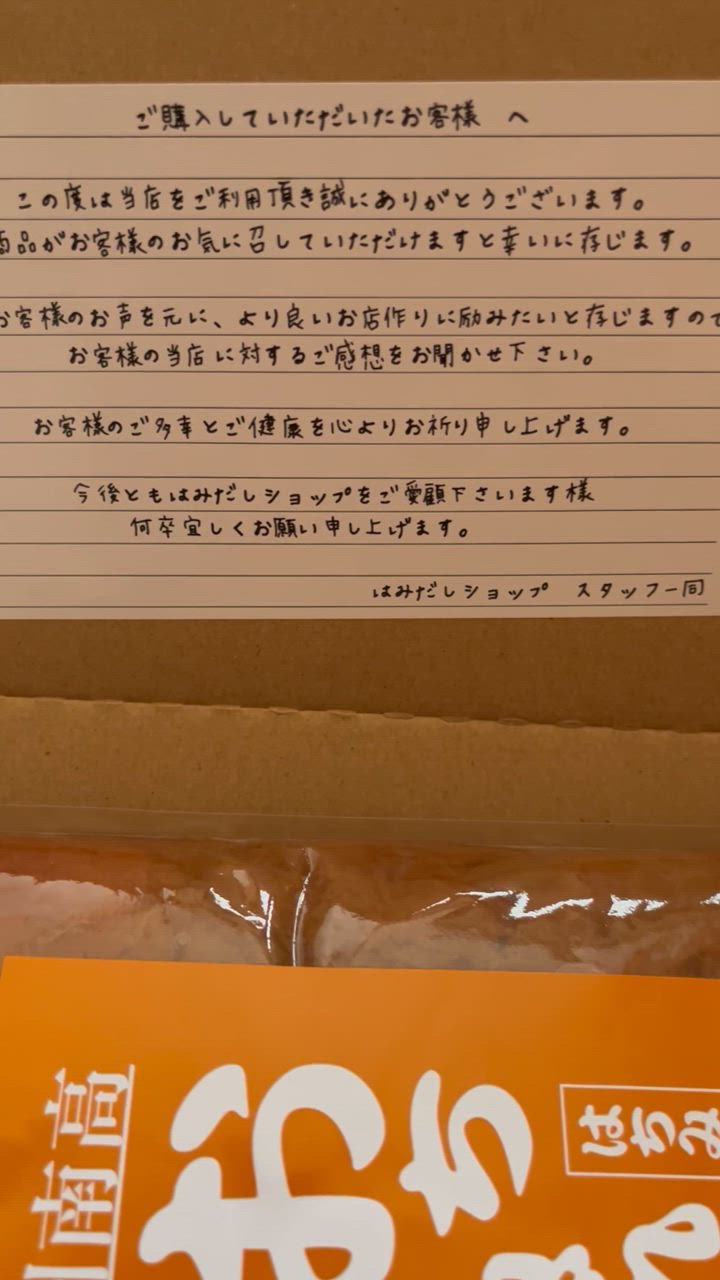 ご購入していただいたお客様 へ
この度は当店をご利用頂き誠にありがとうございます。
商品がお客様のお気に召していただけますと幸いに存じます。
お客様のお声を元に、より良いお店作りに励みたいと存じますので
お客様の当店に対するご感想をお聞かせ下さい。
お客様のご多幸とご健康を心よりお祈り申し上げます。
今後ともはみだしショップをご愛顧下さいます様
何卒宜しくお願い申し上げます。
はみだしショップ スタッフ一同
はちみ
おち
南高